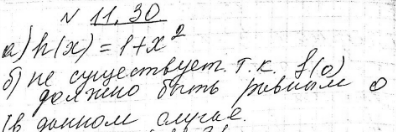 N 11.30
а) h(x) = 1+x²
б) не существует т.к. f(0)
должно быть равным 0
в данном случае.